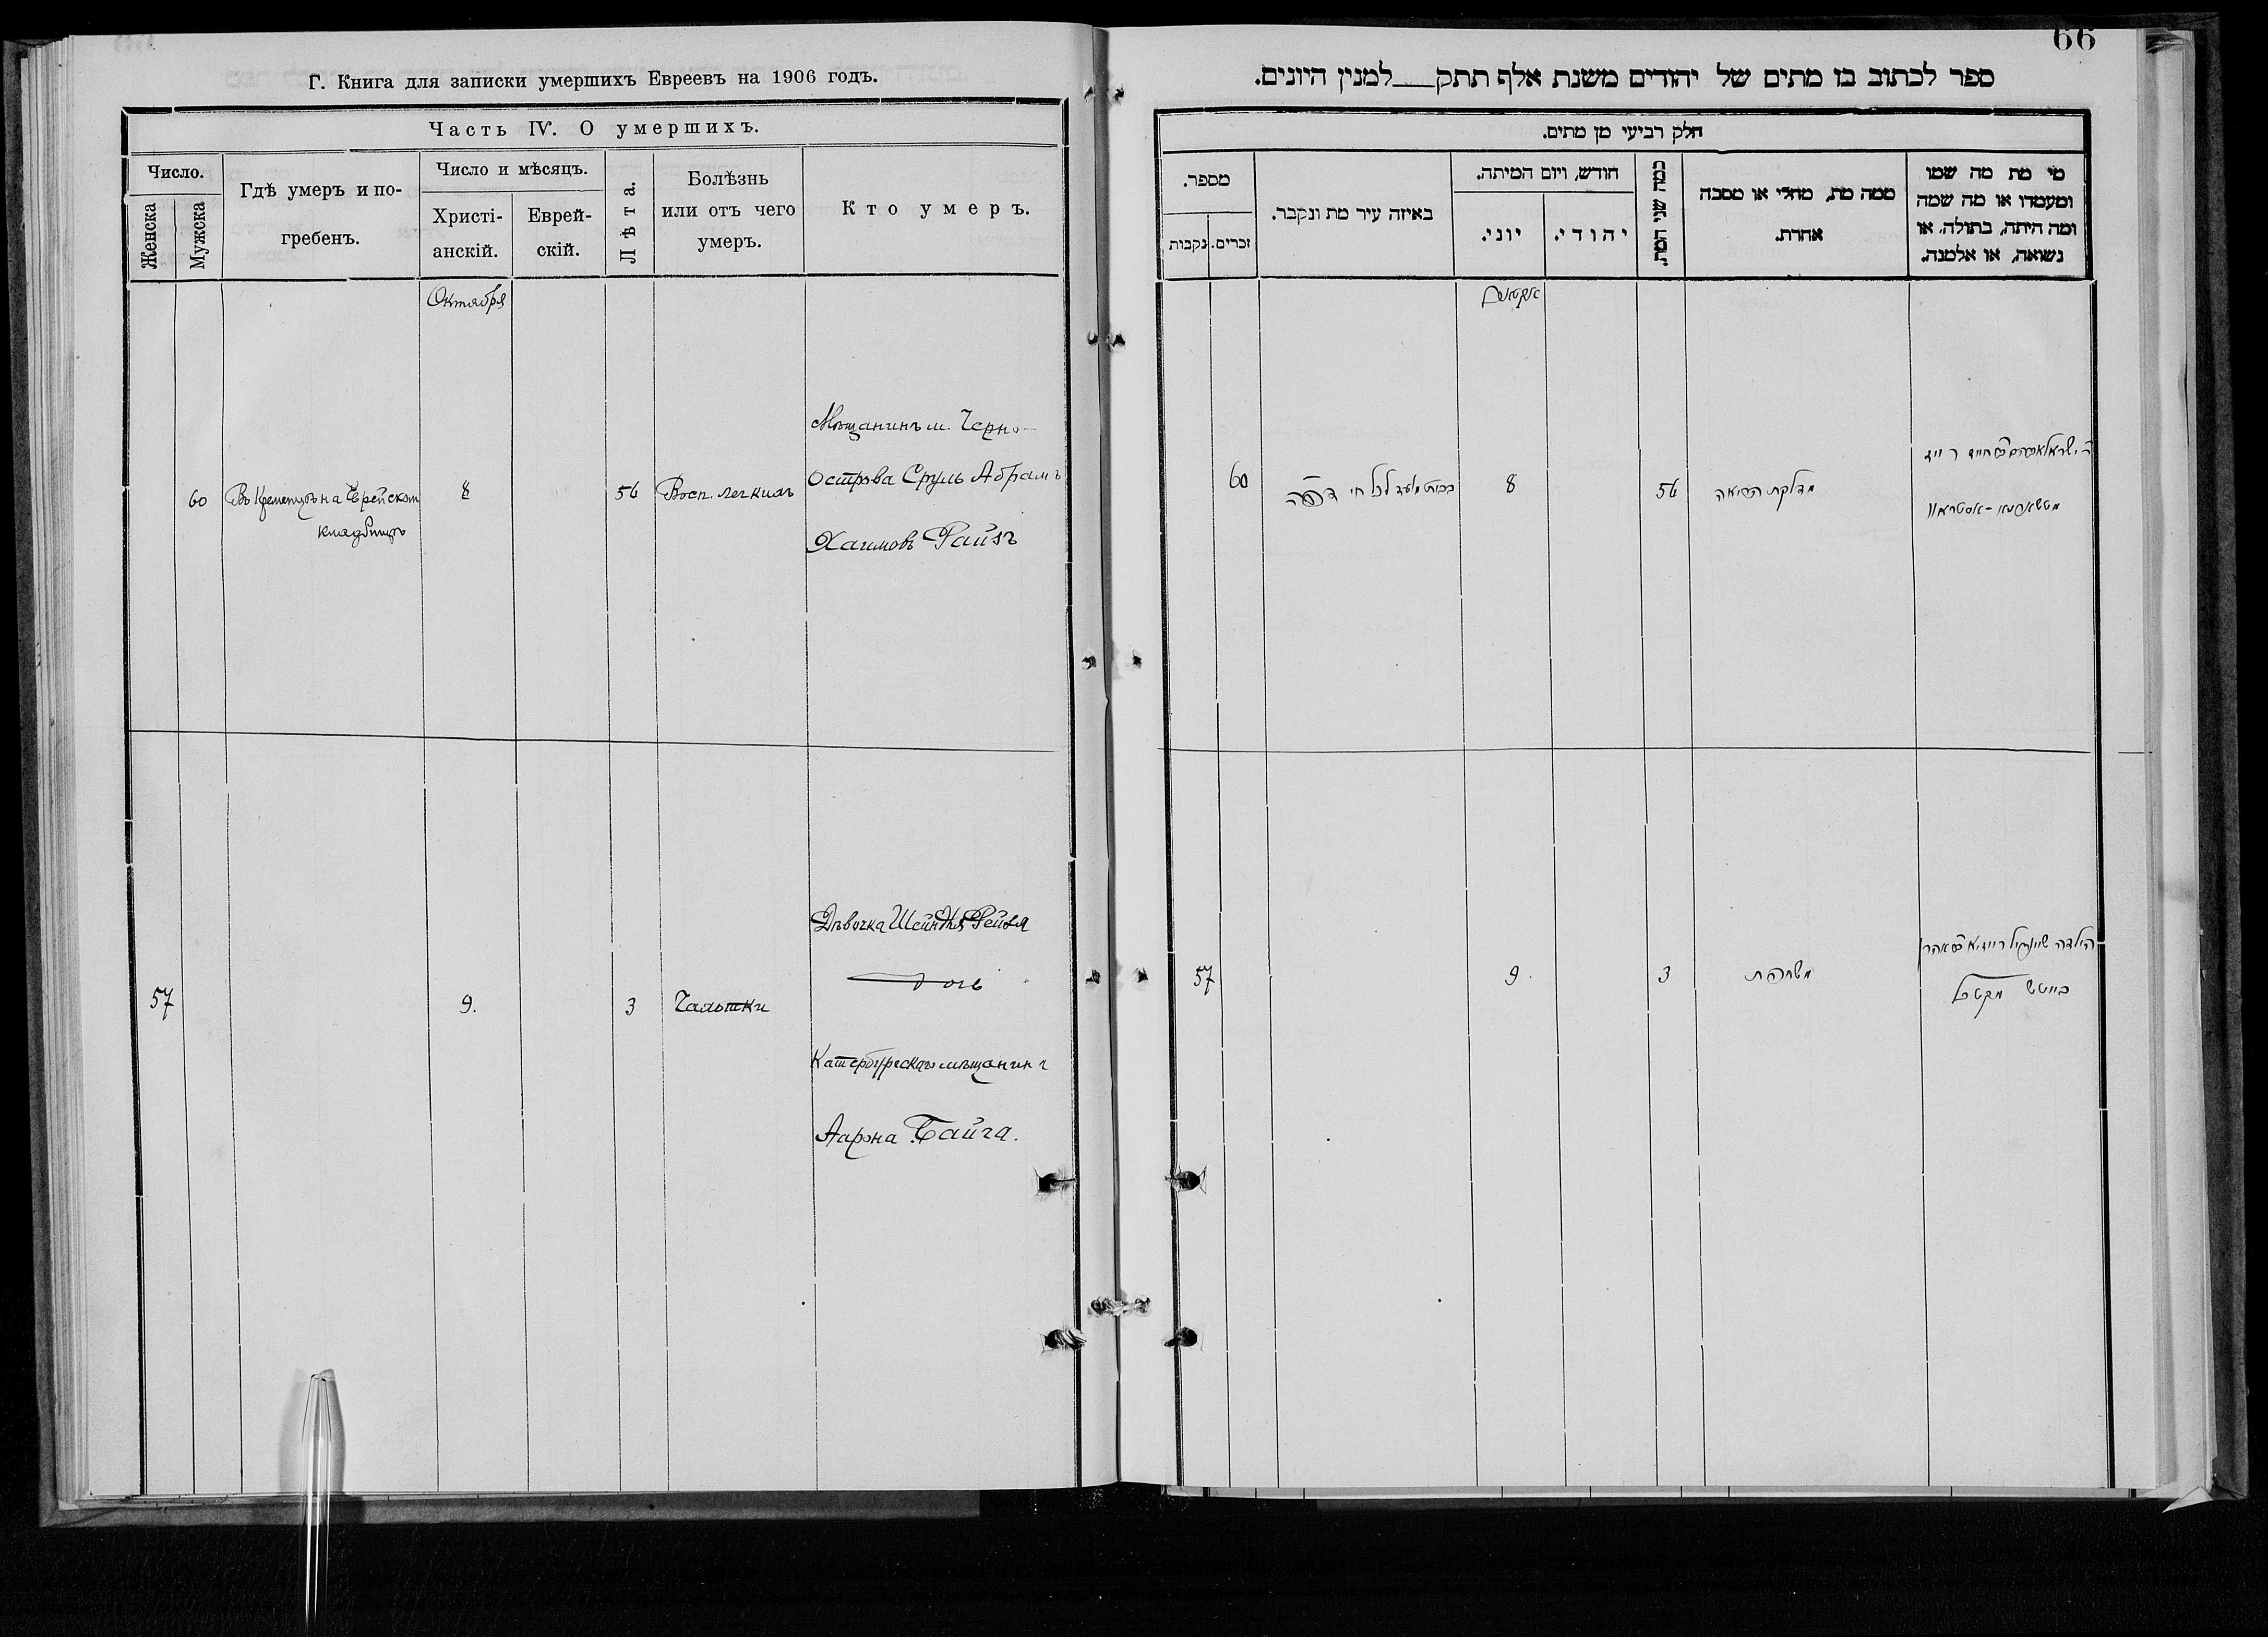 Г. Книга для записки умершихъ Евреевъ на 1906 годъ.
Часть IV. О умершихъ.
Число.
Женска
Мужска
Гдѣ умеръ и по-
гребенъ.
Число и мѣсяцъ.
Христі-
анскій.
Еврей-
скій.
Лѣта.
Болѣзнь
или отъ чего
умеръ.
Кто умеръ.
Октября
60
Въ Кременцѣ на Еврейском
кладбищѣ
8
56
Восп. легкихъ
Мѣщанинъ м. Черно-
острова Сруль Абрамъ
Хаимовъ Райзъ
57
9.
3
Дѣвочка Шейндля Рейзя
дочь
Катербургскаго мѣщанина
Аарона
66
ספר לכתוב בו מתים של יהודים משנת אלף תתק למנין היונים.
חלק רביעי מן מתים.
מספר.
נקבות
זכרים.
באיזה עיר מת ונקבר.
חודש, ויום המיתה.
יוני.
יהודי.
כמה שני המת.
ממה מת, מחלי או מסבה
אחרת.
מי מת מה שמו
ומעמדו או מה שמה
ומה היתה, בתולה, או
נשואה, או אלמנה.
60
8
56
מדלקת הריאה
57
9.
3